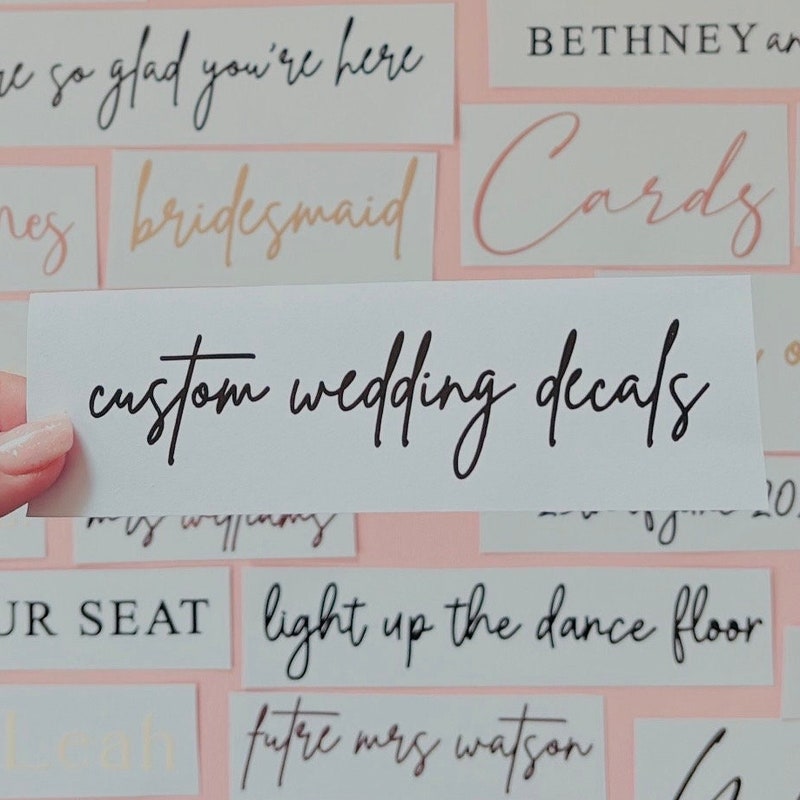 so glad you're here
BETHNEY
bridesmaid
Cards
custom wedding decals
mrs williams
SEAT
light up the dance floor
Leah
futre mrs watson